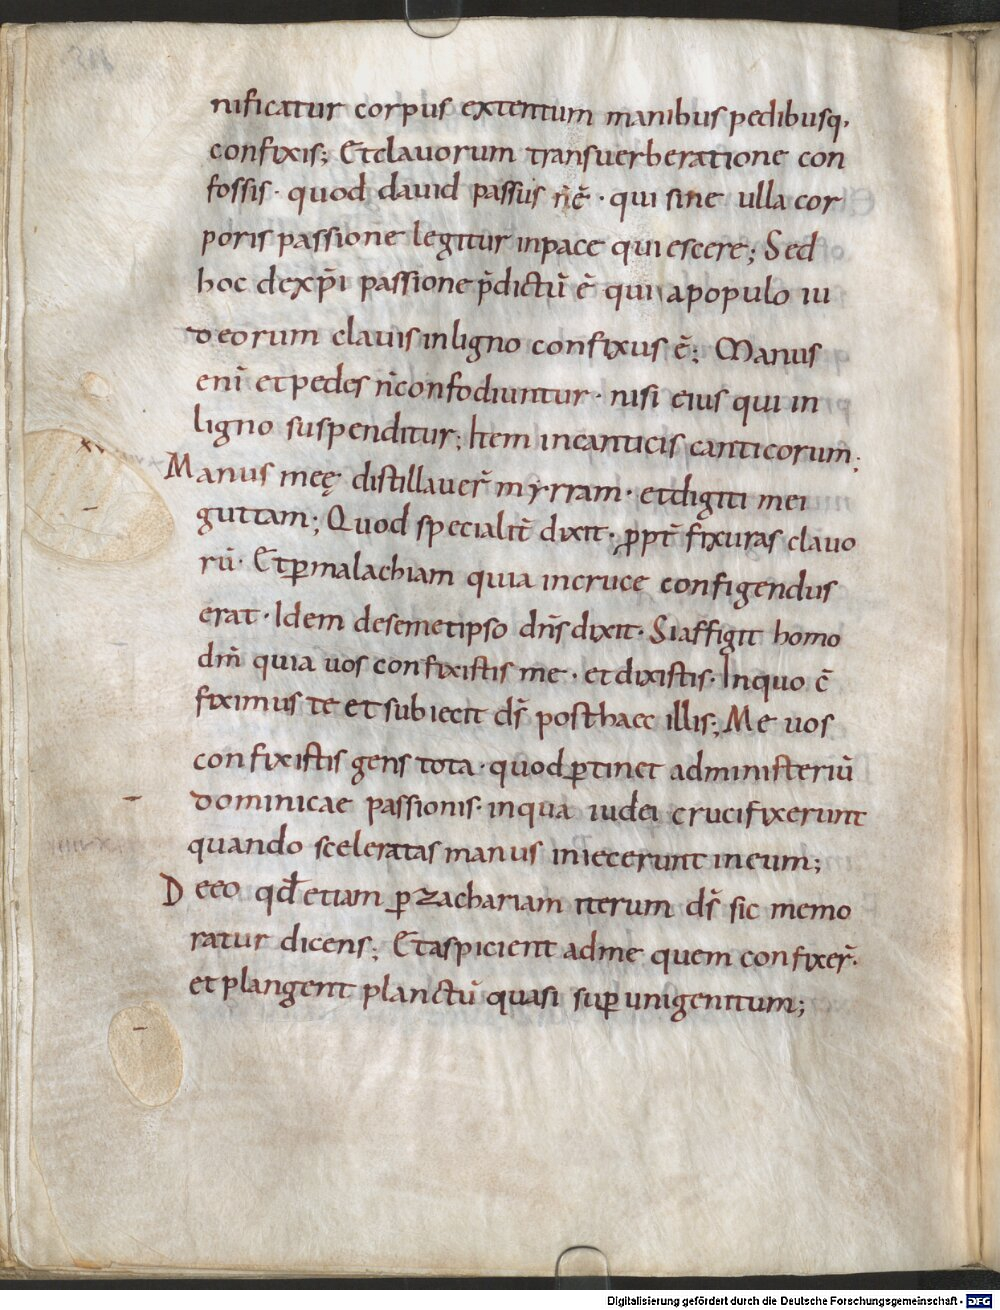 nificatur corpus extentum manibus pedibusq,
confixis; Et clavorum transverberatione con
fossis· quod david passus n̄ ē· qui sine ulla cor
poris passione legitur in pace quiescere; Sed
hoc de xp̄i passione p̄dictū ē qui a populo iu
deorum clavis in ligno confixus ē; Manus
enī et pedes n̄ confodiuntur· nisi eius qui in
ligno suspenditur; Item in canticis canticorum;
Manus meę distillaver̄ myrram· et digiti mei
guttam; Quod specialit̄ dixit· ꝓpt̄ fixuras clavo
rū· Et ꝑ malachiam quia in cruce configendus
erat· Idem de semetipso dn̄s dixit· Si affigit homo
dm̄ quia vos confixistis me· et dixistis· In quo c̄
fiximus te et subiecit ds̄ post haec illis; Me vos
confixistis gens tota· quod ꝑtinet ad ministeriū
dominicae passionis· in qua iudei crucifixerunt
quando sceleratas manus iniecerunt in eum;
De eo qd̄ etiam ꝑ zachariam iterum ds̄ sic memo
ratur dicens; Et aspicient ad me quem confixer̄·
et plangent planctū quasi suꝑ unigenitum;
Digitalisierung gefördert durch die Deutsche Forschungsgemeinschaft - DFG